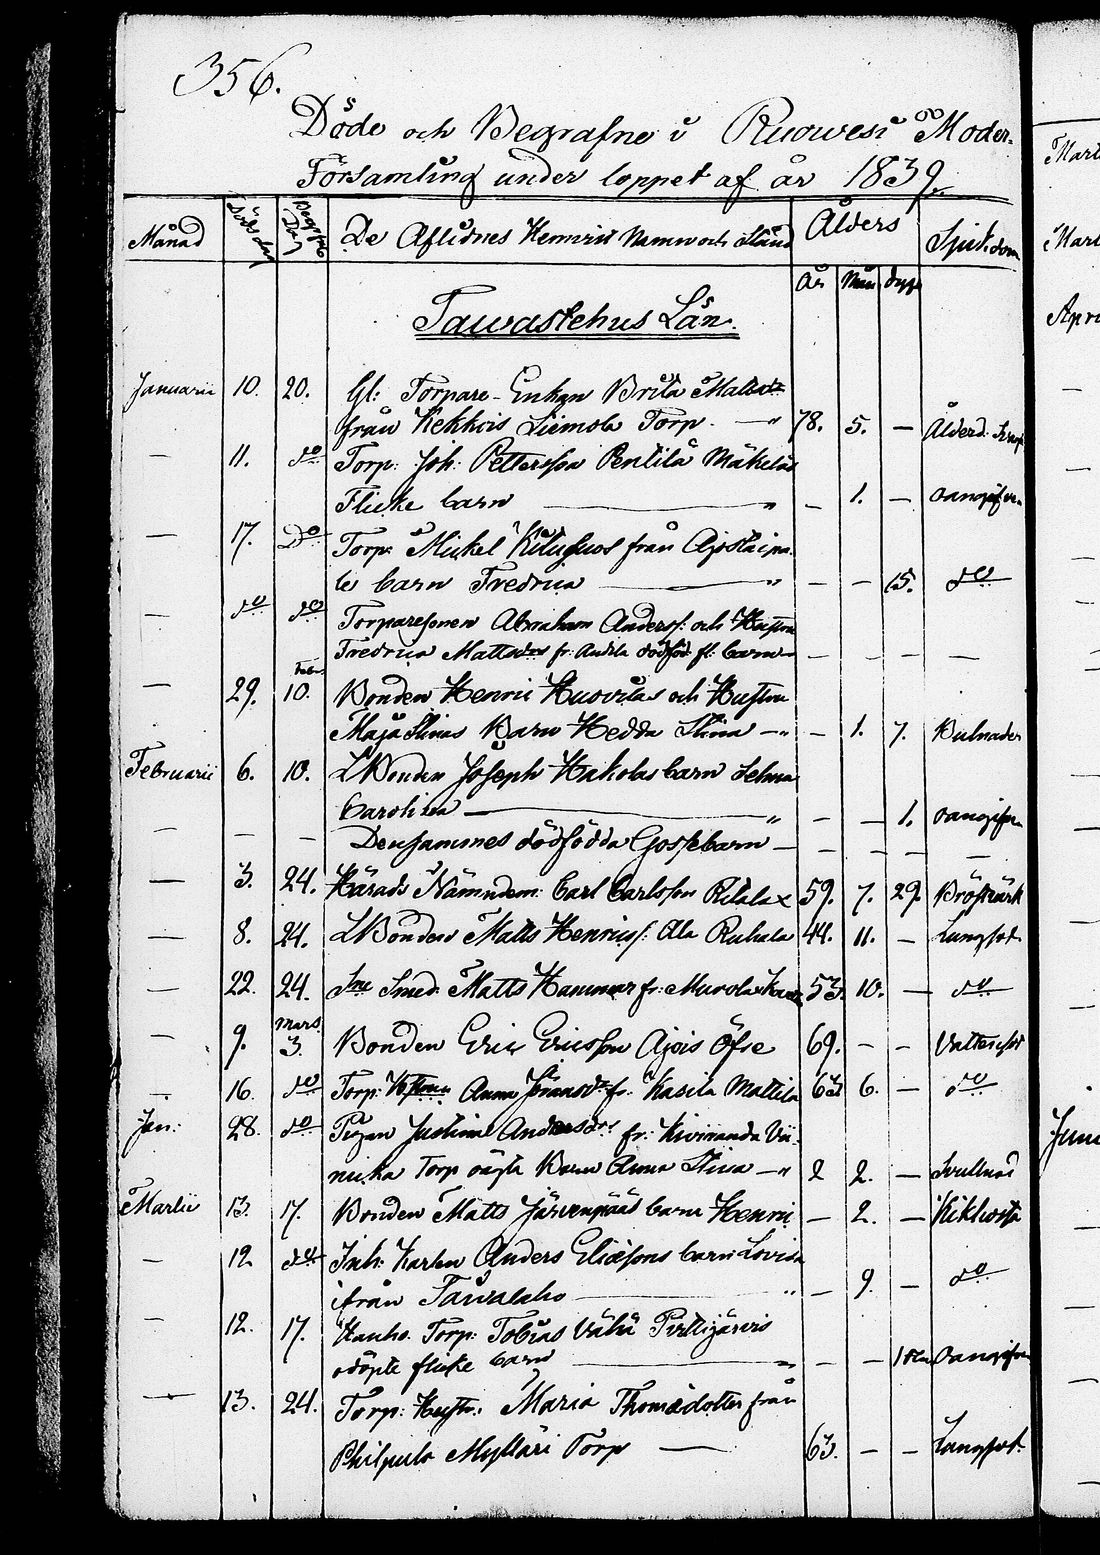 356.
Döde och Begrafne i Ruowesi Moder-
Församling under loppet af år 1839.
Månad Döds dag Begrafn. Dag De Aflidnes Hemvist Namn och Stånd Ålders Sjukdom
År Mån dygn
Tawastehus Län.
Januarii 10. 20. Gl: Torpare-Enkan Brita Mattsdr
från Kekkois Liemola Torp. — " 78. 5. — Ålderd.
— 11. do Torp. Joh: Pettersson Pentilä Mäkeläs
Flicke barn — " — 1. — oangifven
— 17. Do Torp: Mickel från
le barn Fredrica — " — — 15. do
— do do Torparesonen Abraham Anderss: och Hustru
Fredrica Mattsdrs fr: Anttila dödföd fl: barn — — — —
— 29. Febr. 10. Bonden Henric Huovilas och Hustru
Maja Stinas Barn Hedda Stina — " — 1. 7. Bulnader
Februarii 6. 10. LBonden Joseph Hakolas barn Selma
Carolina — " — — 1. oangifven
— — — Densammes dödfödda Gossebarn — — — — —
— 3. 24. Härads Nämndem: Carl Carlsson Ritala 59. 7. 29. Bröstvärk
— 8. 24. LBonden Matts Henricss: Ala Ruhala 44. 11. — Lungsot
— 22. 24. Sne Smed. Matts Hammar fr: Murola 53. 10. — do
— 9. Mars. 3. Bonden Eric Ericsson Ajois Öfre 69. — — Vattusot
— 16. do Torp: Hustrun Anna Jöransdr fr: Kasila Mattila 63 6. — do
Jan: 28. do Pigan Justina Andersdrs fr: Kiviranda Vii-
nicka Torp oägta Barn Anna Stina — " 2 2. — Svullnad
Martii 13. 17. Bonden Matts Järvenpääs barn Henric — 2. — Kikhosta
— 12 do Inh: Karlen Anders Eliæsons barn Lovisa
ifrån — " — 9. — do
— 12. 17. Torp: Tobias Vähä Pirttijärvis
odöpte flicke barn — " — — oangifven
— 13. 24. Torp: Hustr: Maria Thomædotter från
Philpula Mylläri Torp — 63. — — Lungsot
Mart
Mart
Apri
Juni